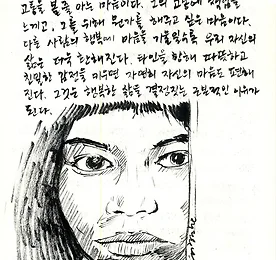 고통을 볼 줄 아는 마음이다. 그의 고통에 책임을
느끼고, 그를 위해 뭔가를 해주고 싶은 마음이다.
다른 사람의 행복에 마음을 기울일수록 우리 자신의
삶은 더욱 환해진다. 타인을 향해 따뜻하고
친밀한 감정을 키우면 자연히 자신의 마음도 편해
진다. 그것은 행복한 삶을 결정짓는 근본적인 이유가
된다.